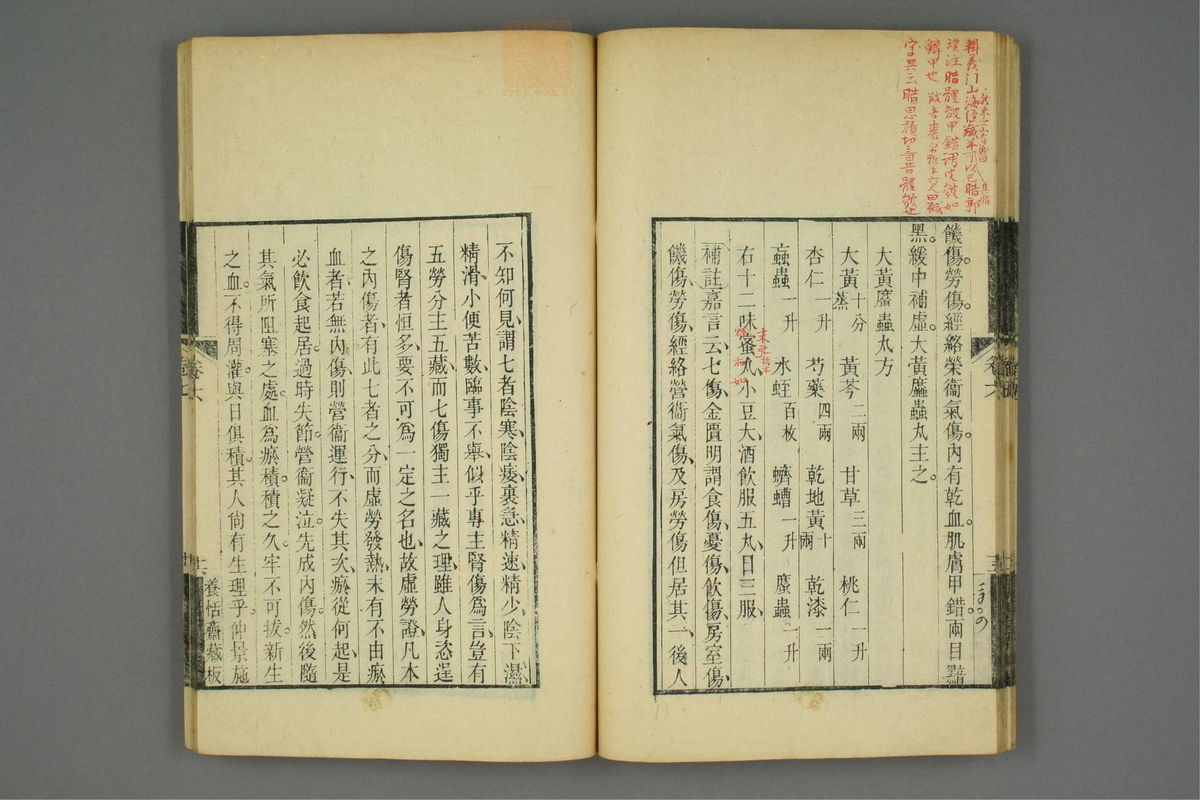 饑傷。勞傷。經絡榮衞氣傷。內有乾血。肌膚甲錯。兩目黯
黑。緩中補虛。大黃䗪蟲丸主之。
大黃䗪蟲丸方
大黃十分蒸 黃芩二兩 甘草三兩 桃仁一升
杏仁一升 芍藥四兩 乾地黃十兩 乾漆一兩
蝱蟲一升 水蛭百枚 蠐螬一升 䗪蟲一升
右十二味蜜丸小豆大、酒飲服五丸、日三服、
補註嘉言云、七傷、金匱明謂食傷、憂傷、飲傷、房室傷、
饑傷、勞傷、經絡營衞氣傷、及房勞傷但居其一、後人
不知何見、謂七者陰寒、陰痿、裏急、精速、精少、陰下濕、
精滑、小便苦數、臨事不舉、似乎專主腎傷爲言、豈有
五勞分主五藏、而七傷獨主一藏之理、雖人身恣逞
傷腎者恒多、要不可爲一定之名也、故虛勞證、凡本
之內傷者、有此七者之分、而虛勞發熱、未有不由瘀
血者、若無內傷、則營衞運行、不失其次、瘀從何起、是
必飲食起居。過時失節。營衞凝泣。先成內傷。然後隨
其氣所阻塞之處。血爲瘀積。積之久。牢不可拔。新生
之血。不得周灌。與日俱積。其人尙有生理乎。仲景施
卷六
養恬齋藏板
輯義門山海經羬羊可以已腊郭
璞注腊體皴甲錯謂皮皴如
鱗甲也
字典云腊思積切音昔體皴也